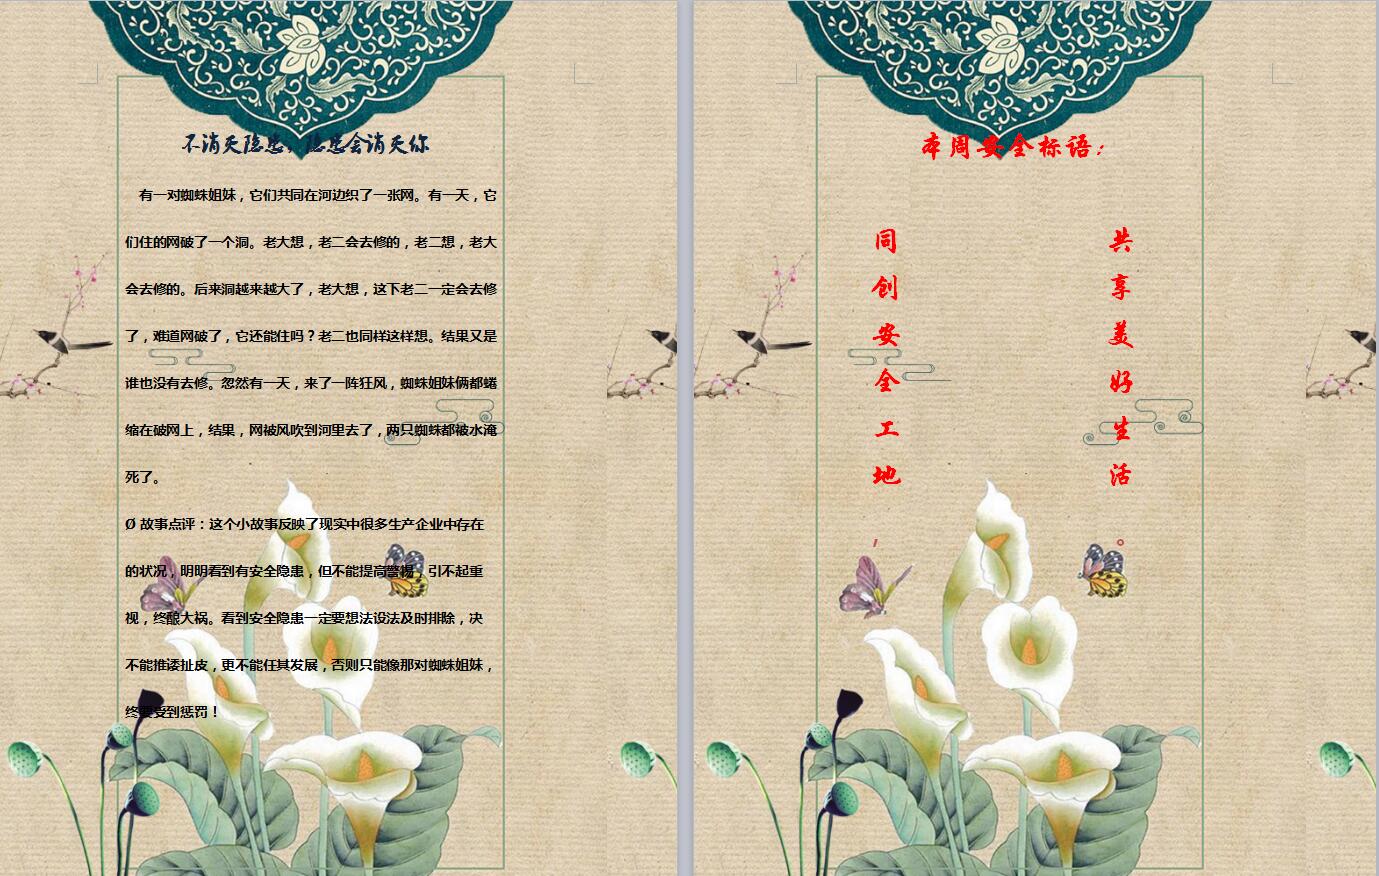 不消灭隐患，隐患会消灭你
有一对蜘蛛姐妹，它们共同在河边织了一张网。有一天，它
们住的网破了一个洞。老大想，老二会去修的，老二想，老大
会去修的。后来洞越来越大了，老大想，这下老二一定会去修
了，难道网破了，它还能住吗？老二也同样这样想。结果又是
谁也没有去修。忽然有一天，来了一阵狂风，蜘蛛姐妹俩都蜷
缩在破网上，结果，网被风吹到河里去了，两只蜘蛛都被水淹
死了。
Ø 故事点评：这个小故事反映了现实中很多生产企业中存在
的状况，明明看到有安全隐患，但不能提高警惕，引不起重
视，终酿大祸。看到安全隐患一定要想法设法及时排除，决
不能推诿扯皮，更不能任其发展，否则只能像那对蜘蛛姐妹，
终要受到惩罚！
本周安全标语：
同创安全工地，
共享美好生活。